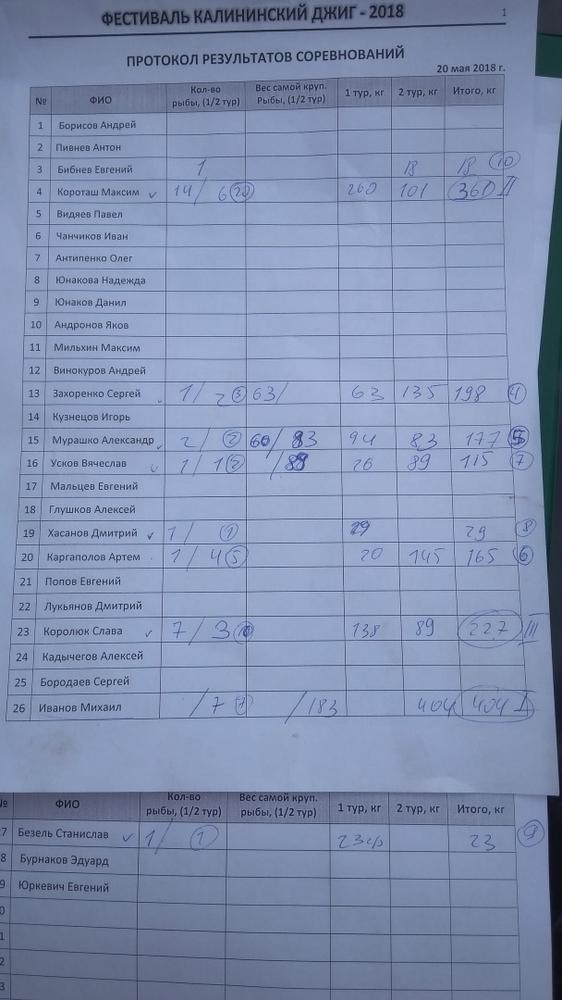 ФЕСТИВАЛЬ КАЛИНИНСКИЙ ДЖИГ - 2018 1
ПРОТОКОЛ РЕЗУЛЬТАТОВ СОРЕВНОВАНИЙ
20 мая 2018 г.
№ ФИО Кол-во рыбы, (1/2 тур) Вес самой круп. Рыбы, (1/2 тур) 1 тур, кг 2 тур, кг Итого, кг
1 Борисов Андрей
2 Пивнев Антон
3 Бибнев Евгений 1 18 18 10
4 Короташ Максим 14/ 6 20 260 101 361 II
5 Видяев Павел
6 Чанчиков Иван
7 Антипенко Олег
8 Юнакова Надежда
9 Юнаков Данил
10 Андронов Яков
11 Мильхин Максим
12 Винокуров Андрей
13 Захоренко Сергей 1/ 2 3 63/ 63 135 198 4
14 Кузнецов Игорь
15 Мурашко Александр 2/ 2 60/ 83 94 83 177 5
16 Усков Вячеслав 1/ 1 2 /89 26 89 115 7
17 Мальцев Евгений
18 Глушков Алексей
19 Хасанов Дмитрий 1/ 1 29 29 8
20 Каргаполов Артем 1/ 4 5 20 145 165 6
21 Попов Евгений
22 Лукьянов Дмитрий
23 Королюк Слава 7/ 3 10 138 89 227 III
24 Кадычегов Алексей
25 Бородаев Сергей
26 Иванов Михаил /7 7 /183 404 404 I
№ ФИО Кол-во рыбы, (1/2 тур) Вес самой круп. рыбы, (1/2 тур) 1 тур, кг 2 тур, кг Итого, кг
7 Безель Станислав 1/ 1 23гр 23 9
8 Бурнаков Эдуард
9 Юркевич Евгений
0
1
2
3